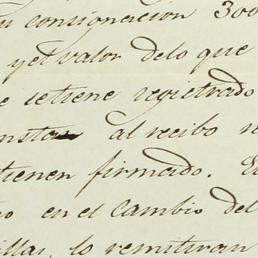 su consignacion 300
y el valor delo que
se tiene registrado
al recibo
tienen firmado.
en el cambio del
lo remitiran